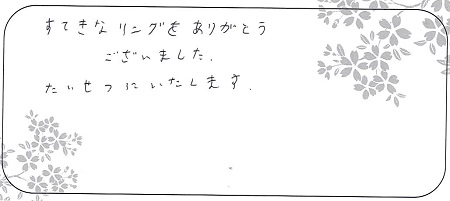 すてきな リングを ありがとう
ございました.
たいせつにいたします.